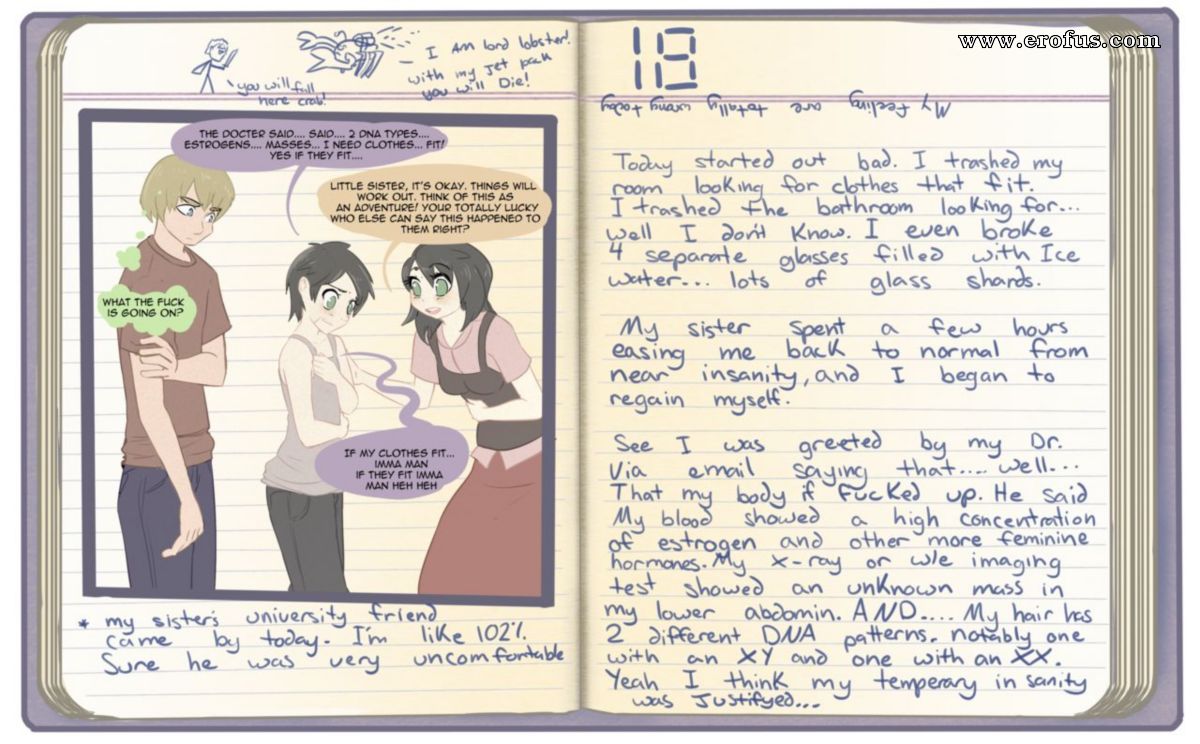 www.erofus.com
you will fall
here crab!
I Am lord lobster!
with my jet pack
you will Die!
THE DOCTER SAID.... SAID.... 2 DNA TYPES....
ESTROGENS.... MASSES... I NEED CLOTHES... FIT!
YES IF THEY FIT....
LITTLE SISTER, IT'S OKAY. THINGS WILL
WORK OUT. THINK OF THIS AS
AN ADVENTURE! YOUR TOTALLY LUCKY
WHO ELSE CAN SAY THIS HAPPENED TO
THEM RIGHT?
WHAT THE FUCK
IS GOING ON?
IF MY CLOTHES FIT...
IMMA MAN
IF THEY FIT IMMA
MAN HEH HEH
* my sister's university friend
came by today. I'm like 102%
Sure he was very uncomfortable
18
My feeling are totally wrong today
Today started out bad. I trashed my
room looking for clothes that fit.
I trashed the bathroom looking for...
well I don't know. I even broke
4 separate glasses filled with Ice
water... lots of glass shards.
My sister spent a few hours
easing me back to normal from
near insanity, and I began to
regain myself.
See I was greeted by my Dr.
Via email saying that.... well...
That my body if Fucked up. He said
My blood showed a high concentration
of estrogen and other more feminine
hormones. My x-ray or w/e imaging
test showed an unknown mass in
my lower abdomin. AND.... My hair has
2 different DNA patterns. notably one
with an XY and one with an XX.
Yeah I think my temperary insanity
was Justifyed...